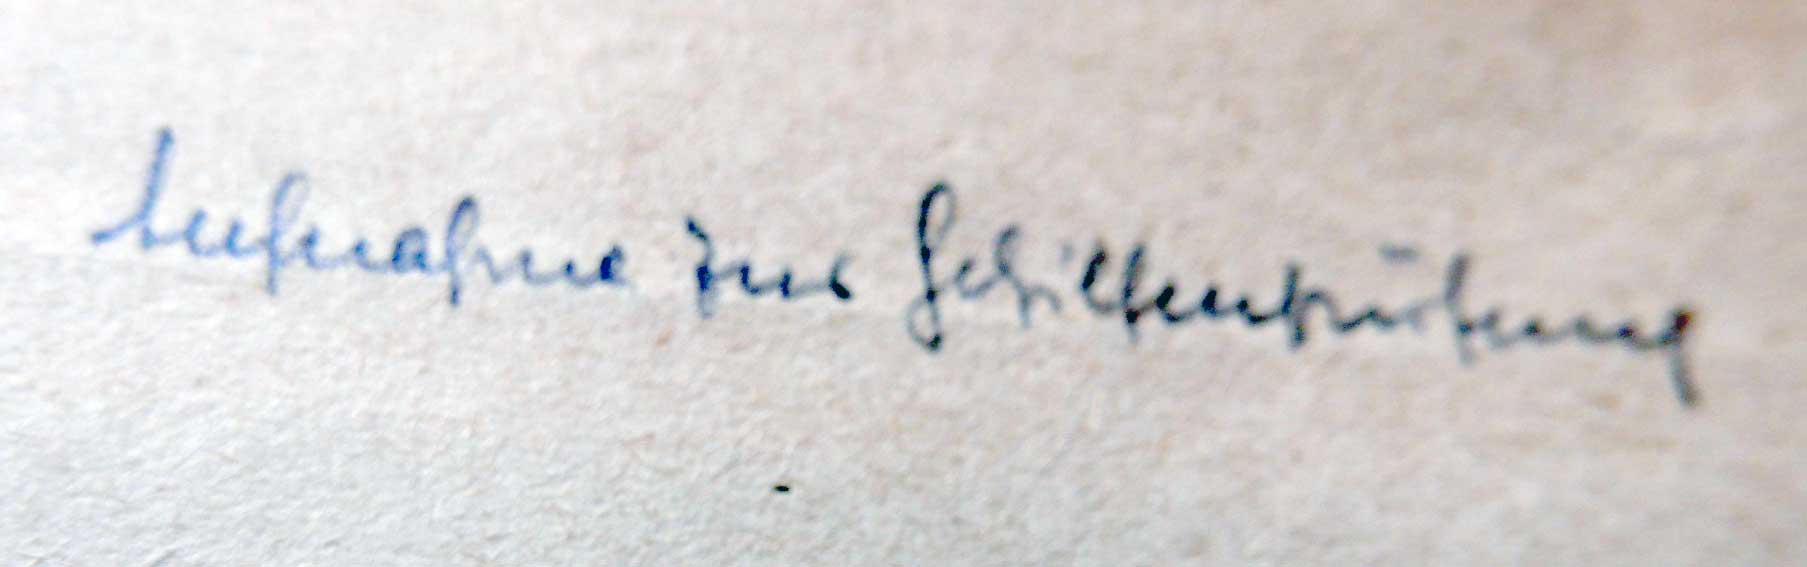 Aufnahme zur Gehilfenprüfung